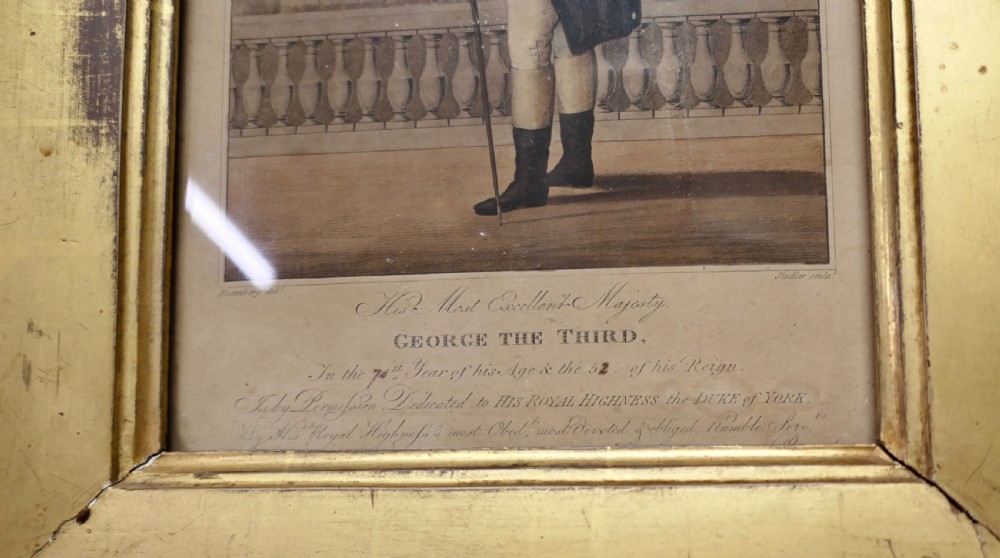 Rosenberg del.
Stadler sculp.
His Most Excellent Majesty
GEORGE THE THIRD,
In the 74st Year of his Age & the 52 of his Reign.
Is by Permission Dedicated to HIS ROYAL HIGHNESS the DUKE of YORK.
By His Royal Highness's most Obedt. most devoted & obliged Humble Servts